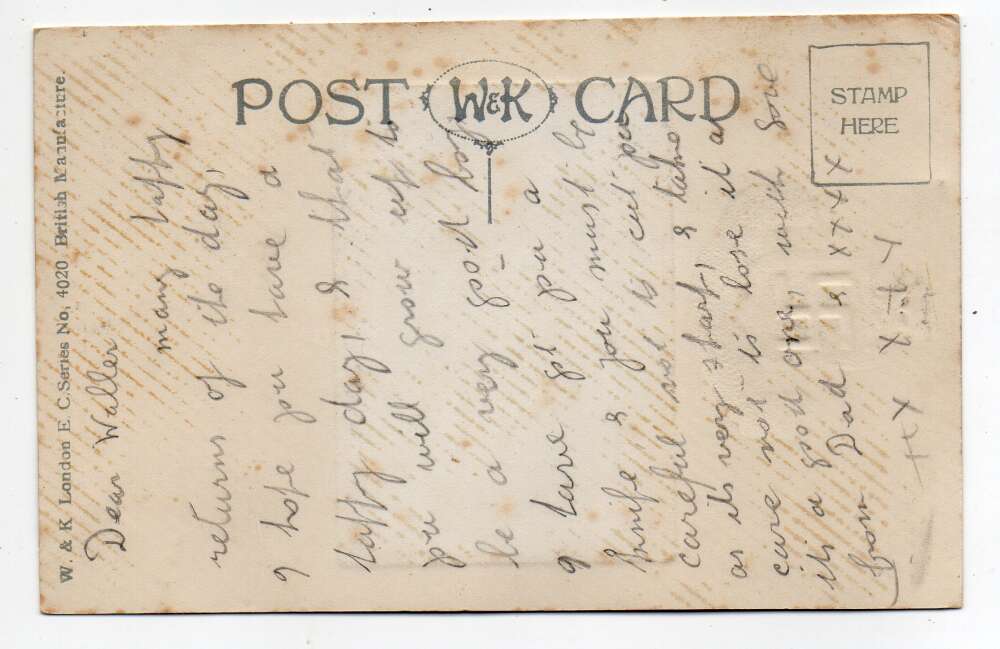 POST W&K CARD
STAMP
HERE
W. & K London E. C. Series No, 4020 British Manufacture.
Dear Walter
many happy
returns of the day,
I hope you have a
happy day, & that
you will grow up to
be a very good boy
I have got you a
knife & you must be
careful not to cut you
as its very sharp, & take
care not to lose it as
its a good one, with love
from Dad & xxxx
xx x x x